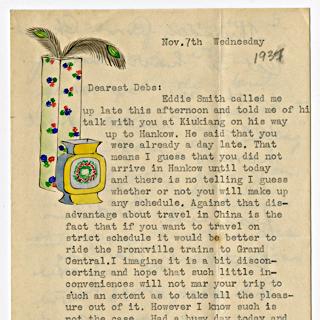 Nov.7th Wednesday
1934
Dearest Debs:
Eddie Smith called me
up late this afternoon and told me of hi
talk with you at Kiukiang on his way
up to Hankow. He said that you
were already a day late. That
means I guess that you did not
arrive in Hankow until today
and there is no telling I guess
whether or not you will make up
any schedule. Against that dis-
advantage about travel in China is the
fact that if you want to travel on
strict schedule it would be better to
ride the Bronxville trains to Grand
Central.I imagine it is a bit discon-
certing and hope that such little in-
conveniences will not mar your trip to
such an extent as to take all the pleas-
ure out of it. However I know such is
not the case. Had a busy day today and